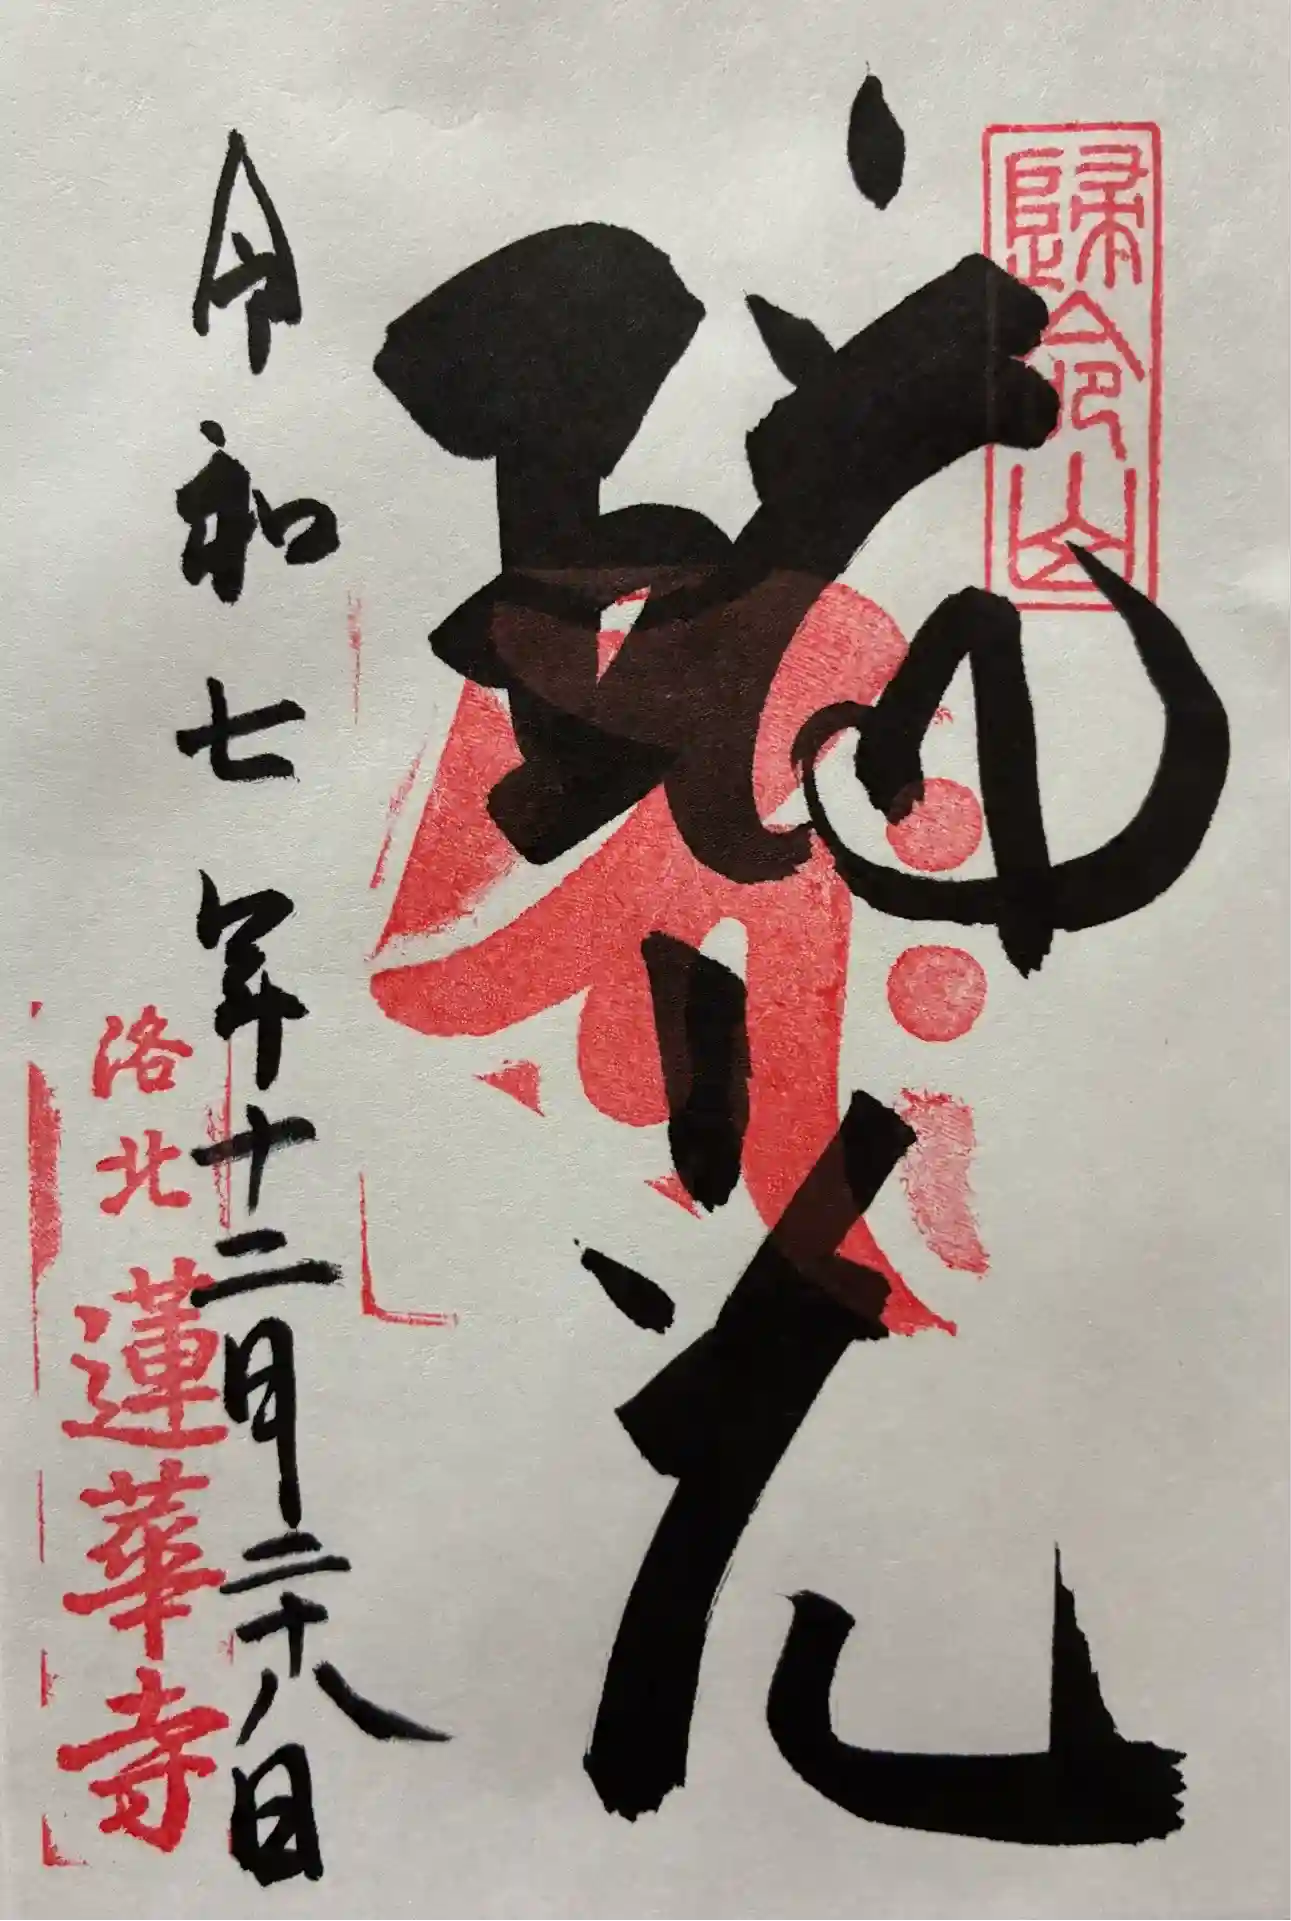 歸命山
光
令和七年十二月二十八日
洛北 蓮華寺